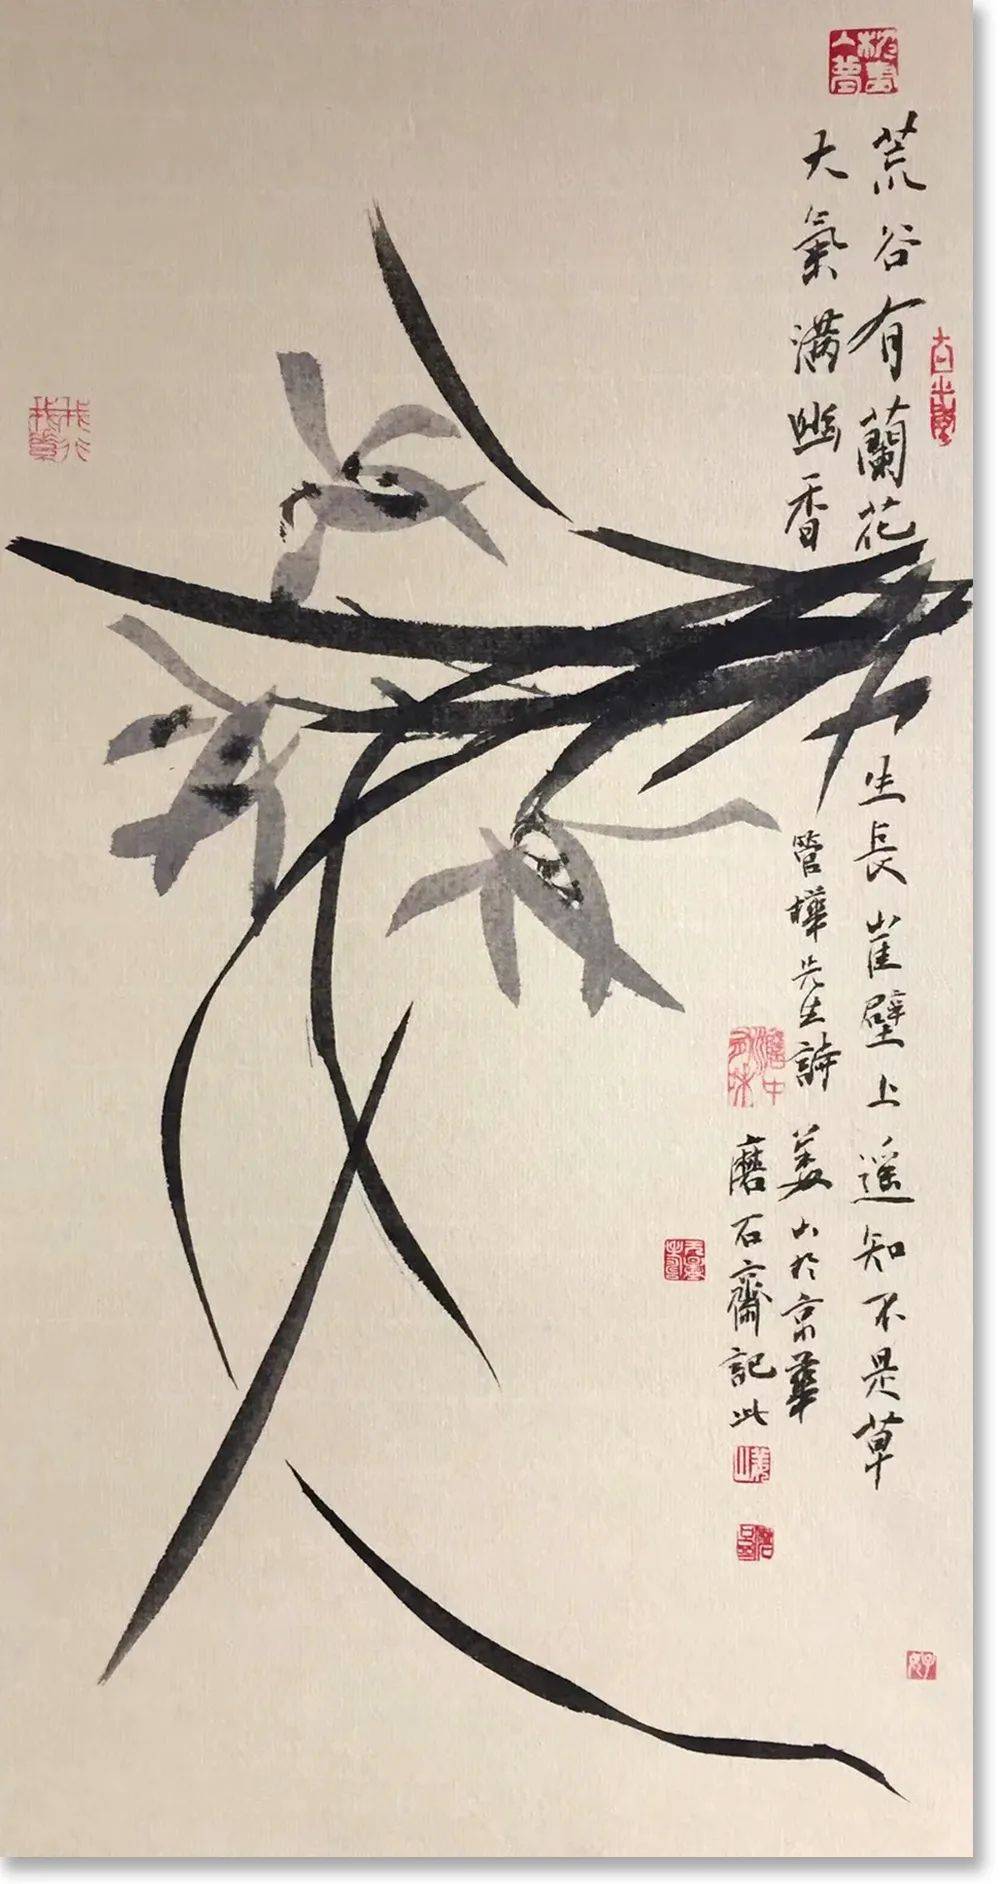 荒谷有蘭花
生長崖壁上遥知不是草
大氣满幽香
管樺先生詩
姜山於京華
磨石齋記此